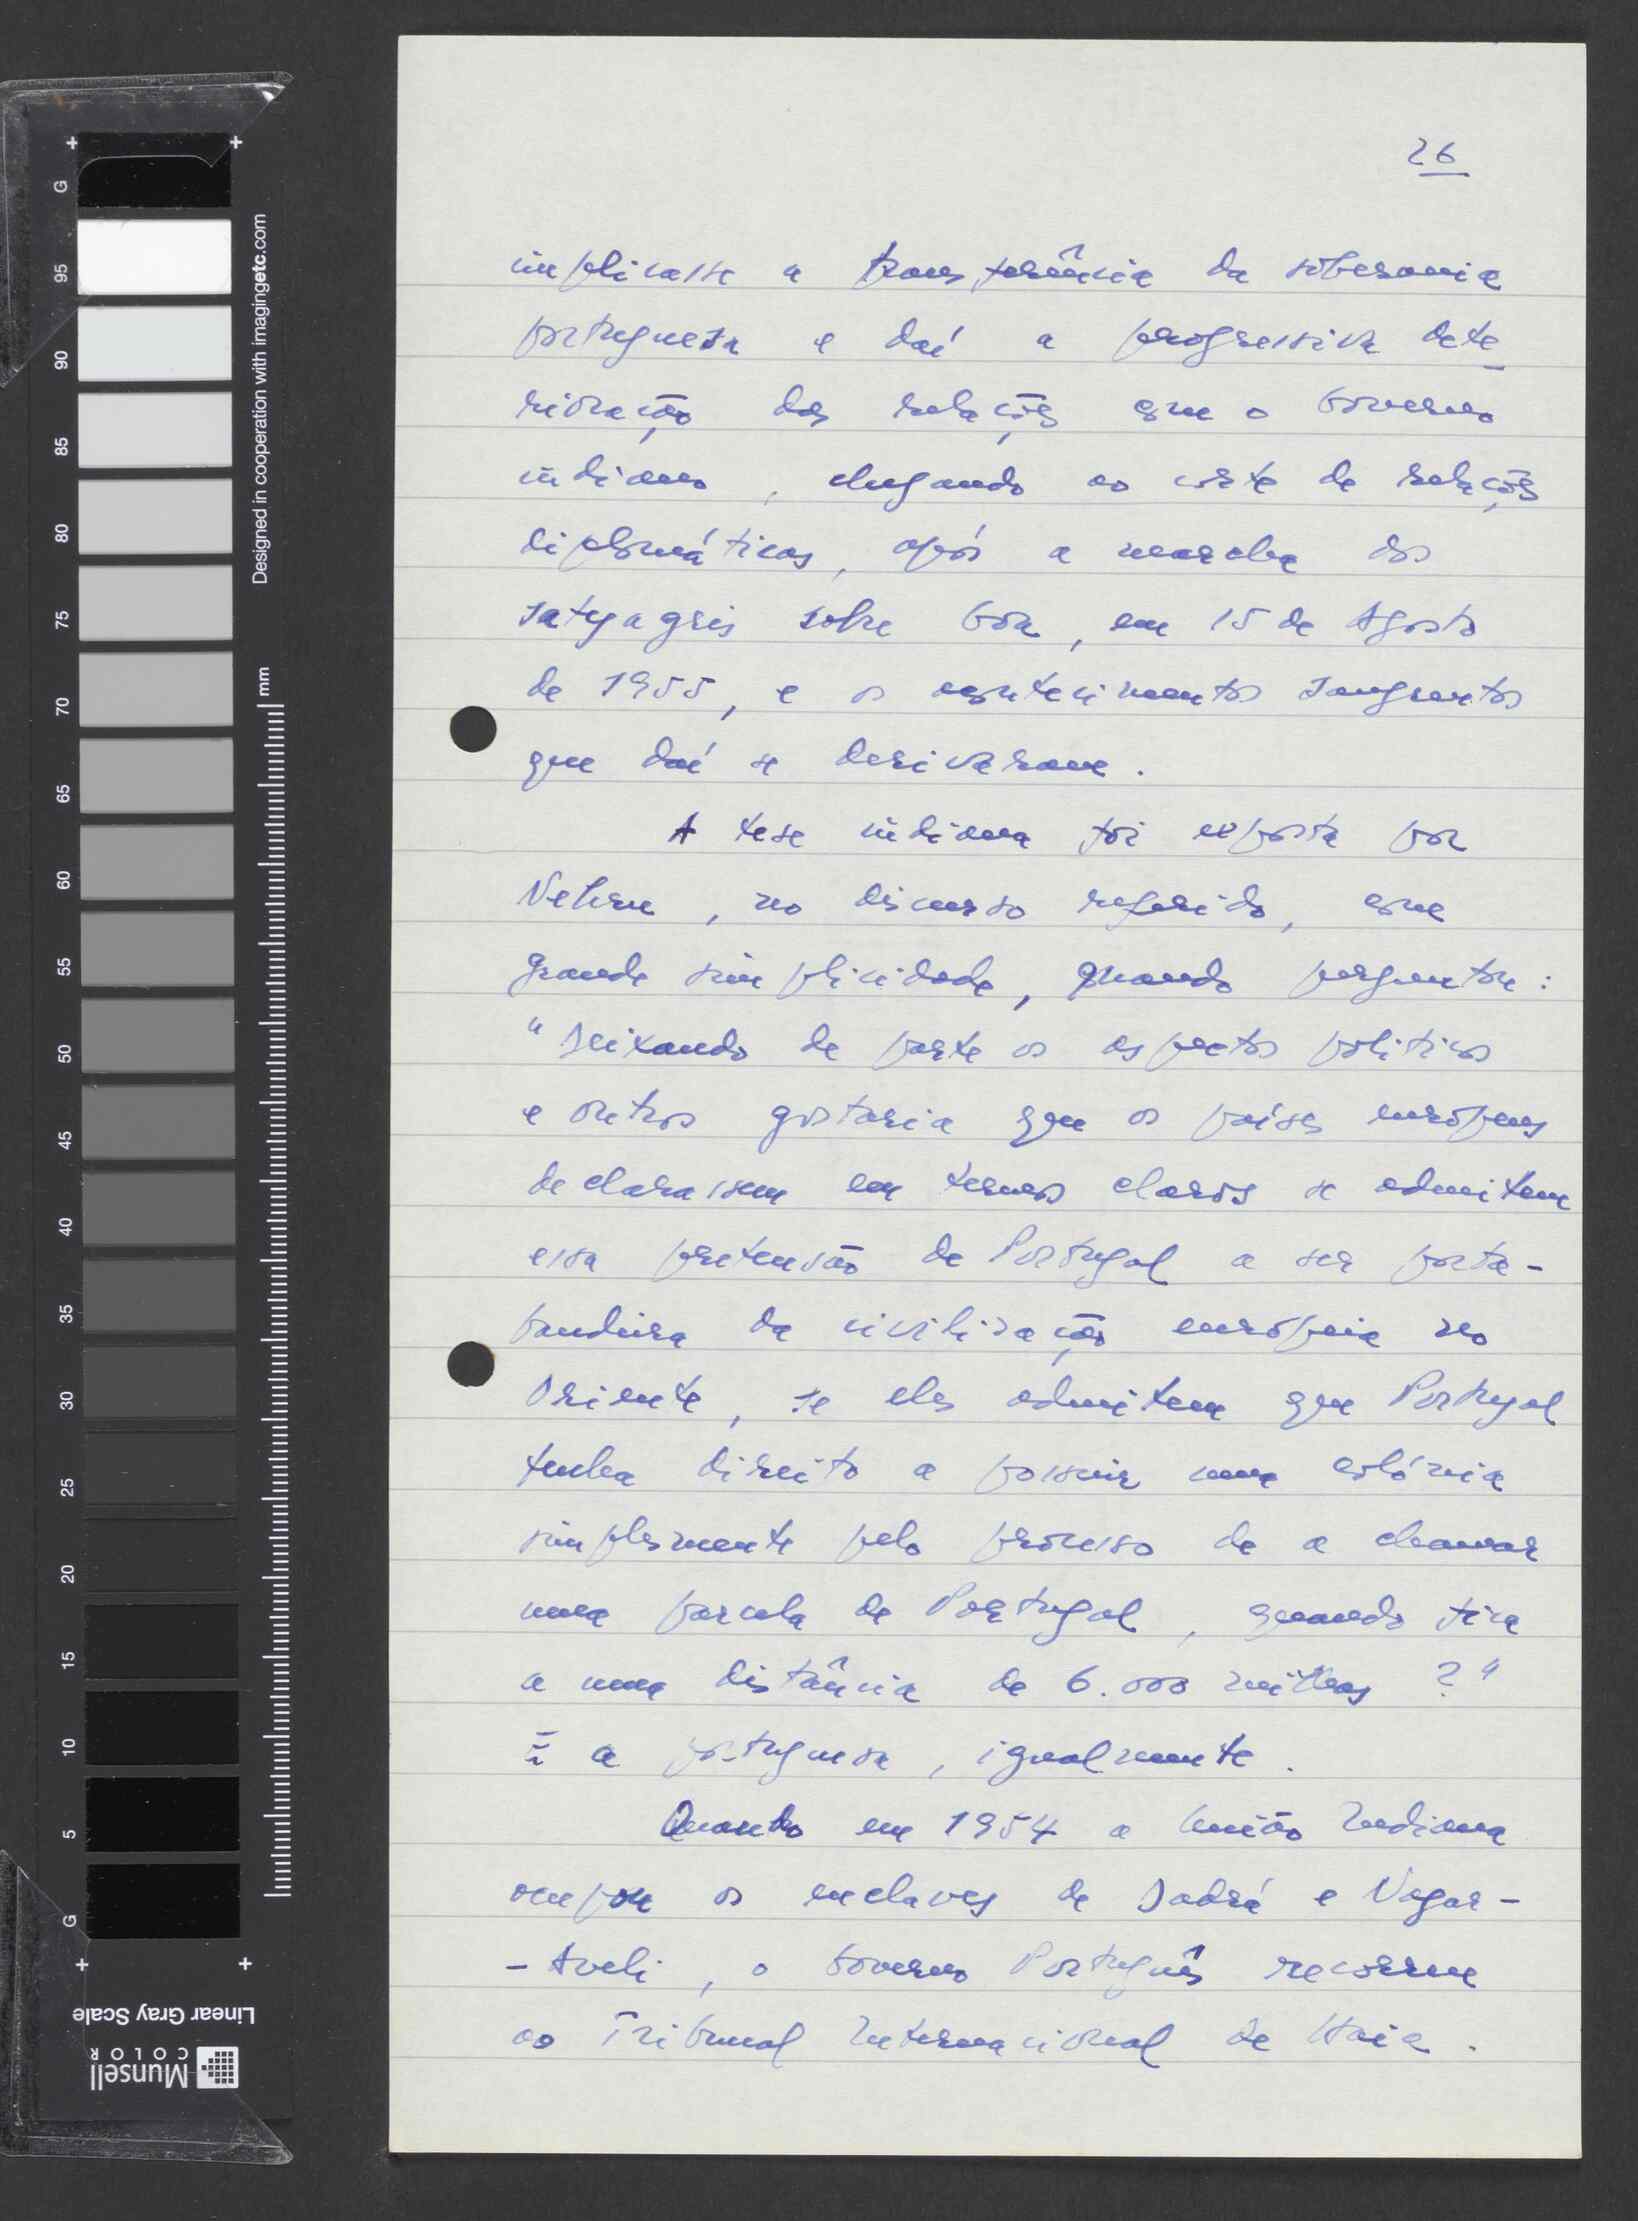 26
implicasse a transferência da soberania
portuguesa e daí a progressiva dete-
rioração das relações com o Governo
indiano, chegando ao corte de relações
diplomáticas, após a marcha dos
satyagris sobre Goa, em 15 de Agosto
de 1955, e os acontecimentos sangrentos
que daí se derivaram.
A tese indiana foi exposta por
Nehru, no discurso referido, com
grande simplicidade, quando perguntou:
"Deixando de parte os aspectos politicos
e outros gostaria que os países europeus
declarassem em termos claros se admitem
essa pretensão de Portugal a ser porta-
bandeira da civilização européia no
Oriente, se eles admitem que Portugal
tenha direito a possuir uma colónia
simplesmente pelo processo de a chamar
uma parcela de Portugal, quando fica
a uma distância de 6.000 milhas?"
E a portuguesa, igualmente.
Quando em 1954 a União Indiana
ocupou os enclaves de Dadrá e Nagar-
-Aveli, o Governo Português recorreu
ao Tribunal Internacional de Haia.
G
95
90
85
80
75
70
65
60
55
50
45
40
35
30
25
20
15
10
5
G
Designed in cooperation with imagingetc.com
mm
Linear Gray Scale
Munsell
COLOR